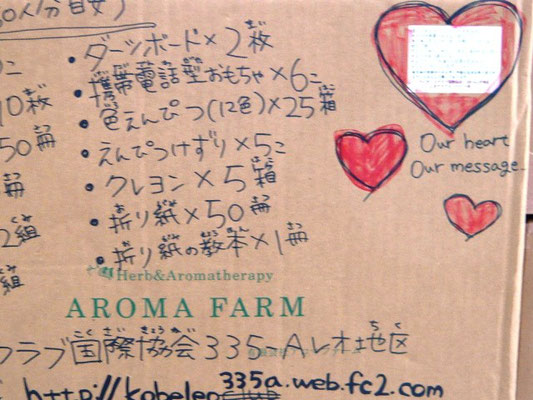 0人分目安)
・ダーツボード×2枚
・携帯電話型おもちゃ×6こ
・色えんぴつ(12色)×25箱
・えんぴつけずり×5こ
・クレヨン×5箱
・折り紙×50冊
・折り紙の教本×1冊
こ
10枚
50冊
冊
2組
組
Our heart
Our message.
Herb&Aromatherapy
AROMA FARM
クラブ国際協会335-Aレオ地区
http://kobeleo335a.web.fc2.com